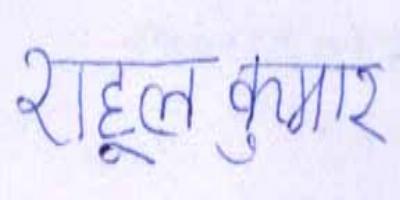 राहूल कुमार